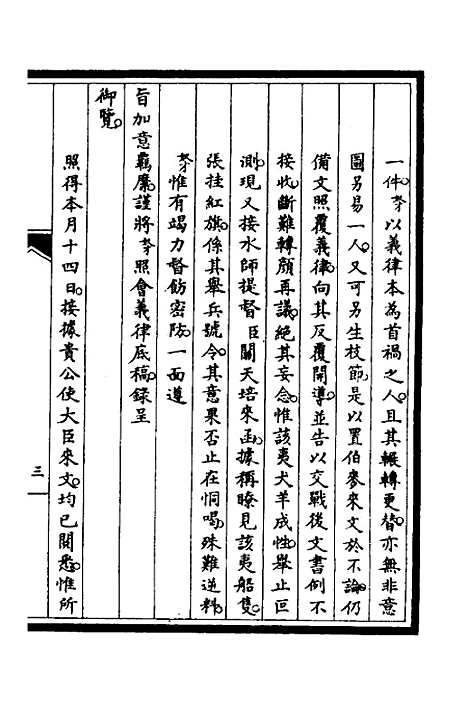 一件奴才以義律本為首禍之人且其輾轉更替亦無非意
圖另易一人又可另生枝節是以置伯麥來文於不論仍
備文照覆義律向其反覆開導並告以交戰後文書例不
接收斷難轉頗再議絕其妄念惟該夷犬羊成性舉止叵
測現又接水師提督臣關天培來函據稱瞭見該夷船隻
張挂紅旗係其舉兵號令其意果否止在恫喝殊難逆料
奴才惟有竭力督飭密防一面遵
旨加意羈縻謹將奴才照會義律底稿錄呈
御覽
照得本月十四日接據貴公使大臣來文均已閱悉惟所
三